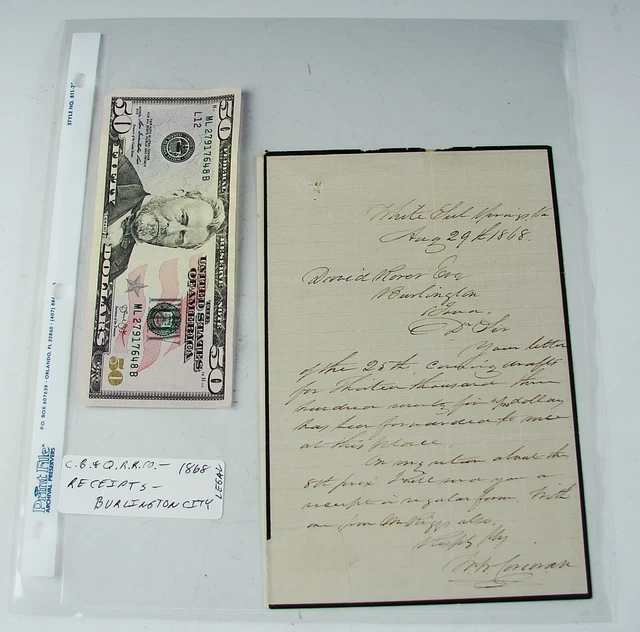 STYLE NO. 811-2
P.O. BOX 607638 - ORLANDO, FL 32860 - (407) 88
Print File
ARCHIVAL PRESERVERS
50
FEDERAL RESERVE NOTE
ML27917648B
L12
THE UNITED STATES
OF AMERICA
ML27917648B
FIFTY DOLLARS
50
50
C.B.&Q.R.R.CO. - 1868
RECEIPTS -
BURLINGTON CITY
LEGAL
White Sul Springs Va
Aug 29th 1868.
David Rorer Esq
Burlington
Iowa.
Dr Sir
Your letter
of the 25th, covering drafts
for thirteen thousand three
hundred seventy five dollars
has been forwarded to me
at this place.
On my return about the
8th prox I will send you a
receipt in regular form, with
one from Mr Riggs also.
W W Corcoran